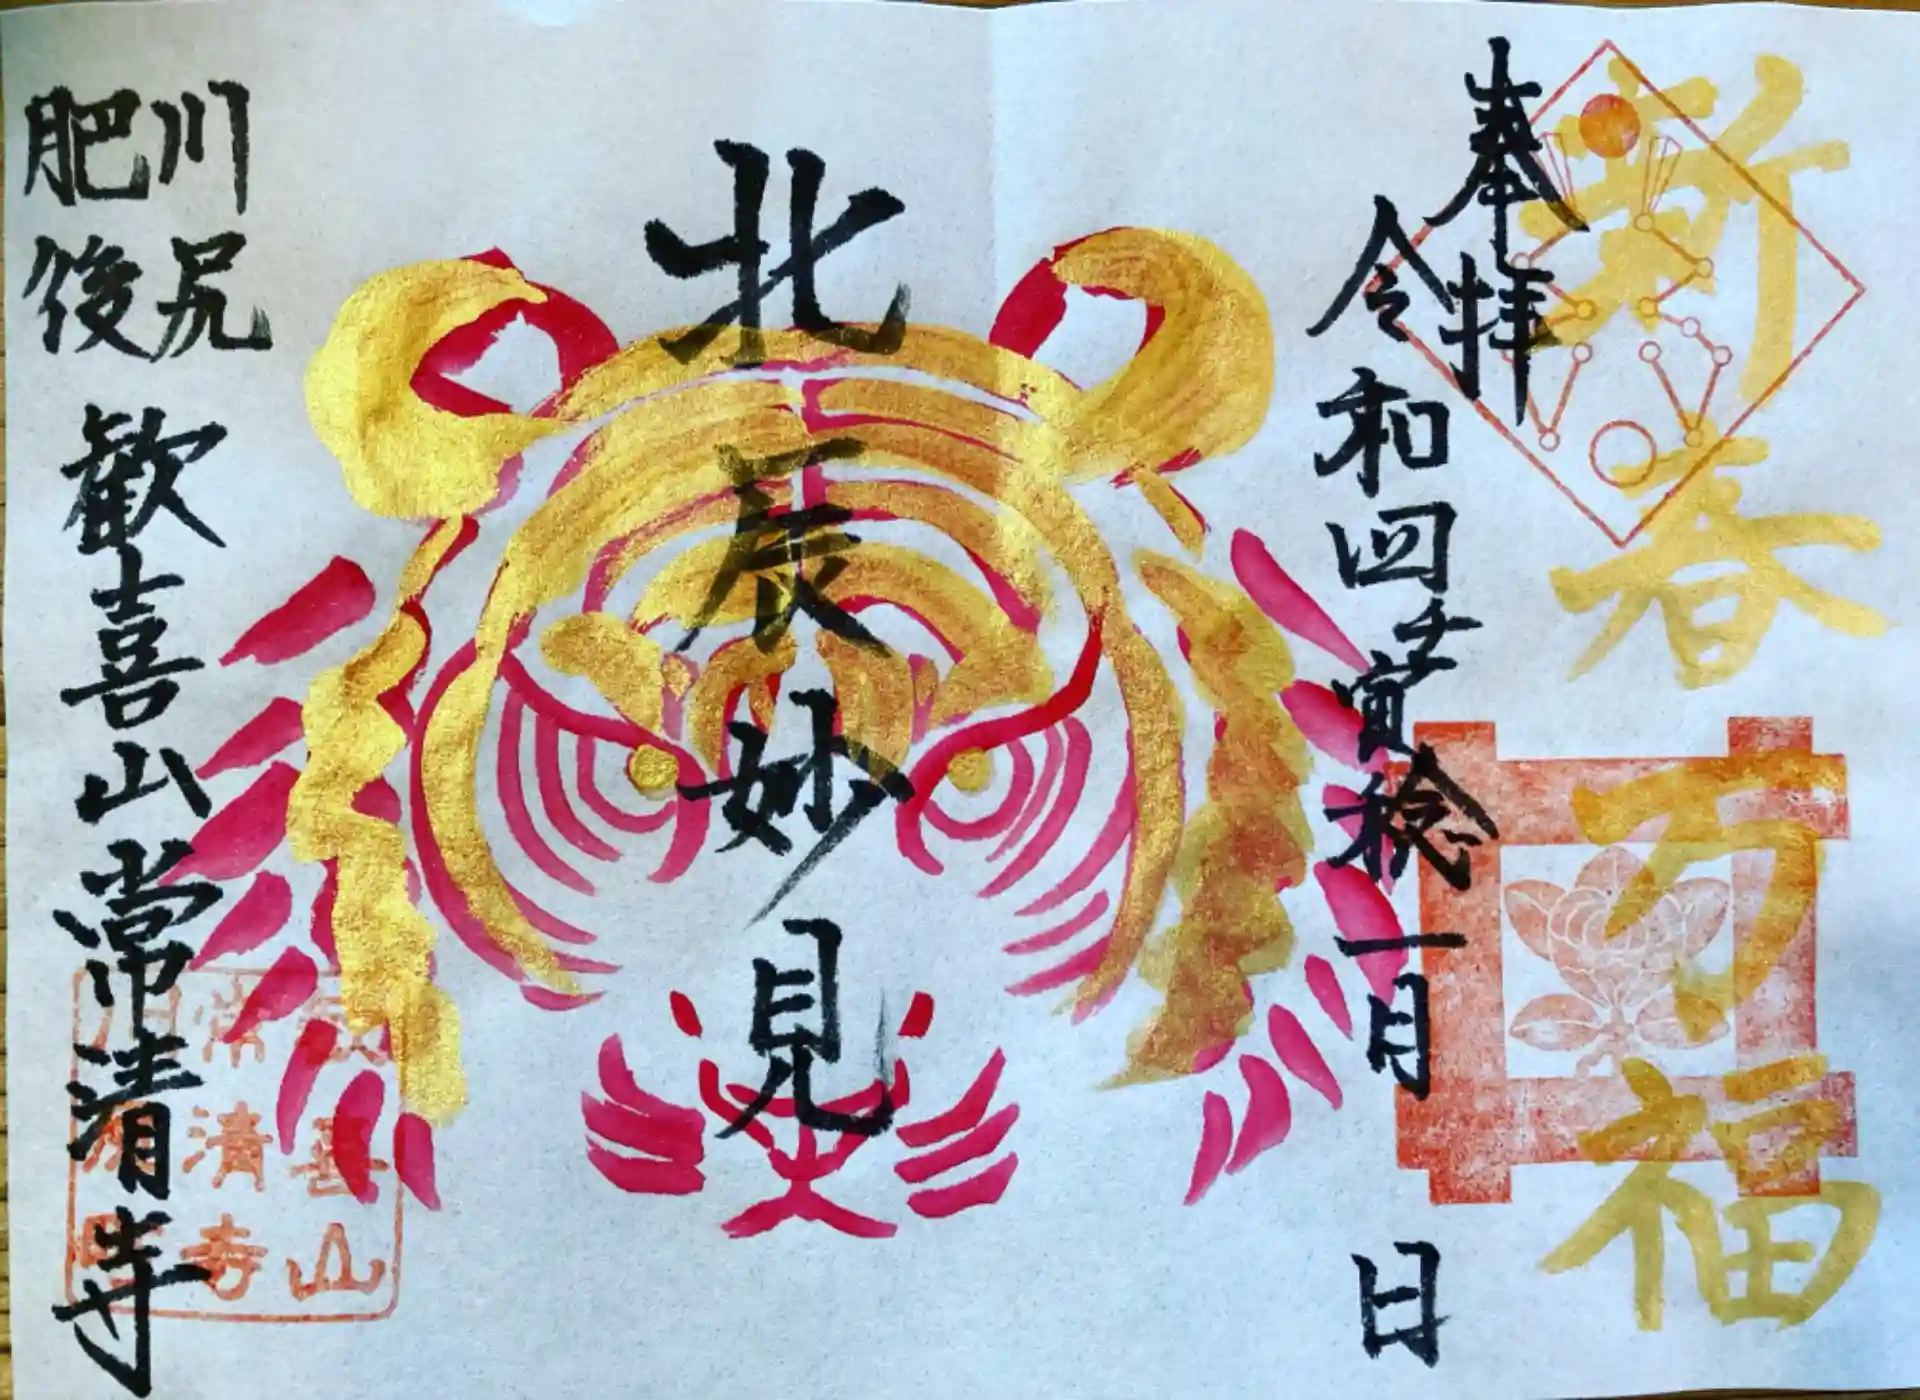 新春万福
奉拝
令和四壬寅稔一月 日
北辰妙見
肥後
川尻
歓喜山常清寺
歓喜山
常清寺